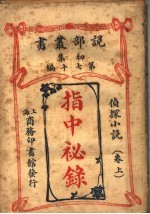 說部叢書
初集
第七十編
偵探小說
(卷上)
指中祕錄
上海
商務印書館發行